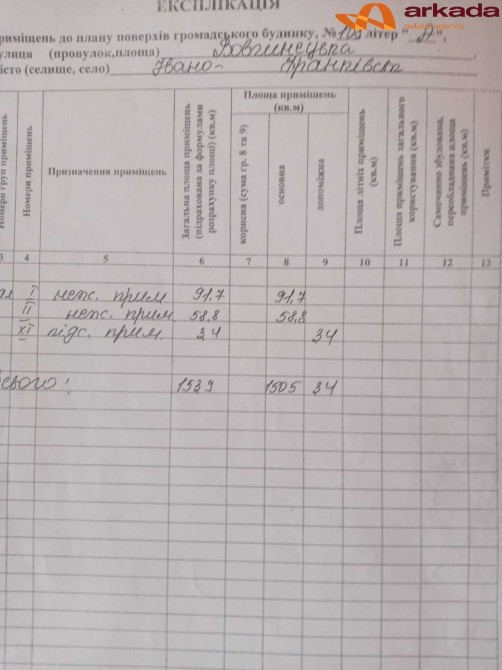 ЕКСПЛІКАЦІЯ
arkada
estate agency
приміщень до плану поверхів громадського будинку, № літер "Д".
вулиця (провулок,площа) Вовчинецька
місто (селище, село) Івано-Франківськ
Номера груп приміщень
Номери приміщень
Призначення приміщень
Загальна площа приміщень (підрахована за формулами розрахунку площі) (кв.м)
Площа приміщень (кв.м)
корисна (сума гр. 8 та 9)
основна
допоміжна
Площа літніх приміщень (кв.м)
Площа приміщень загального користування (кв.м)
Самочинно збудована, переобладнана площа приміщень (кв.м)
Примітки
3 4 5 6 7 8 9 10 11 12 13
I неж. прим 91,7 91,7
II неж. прим 58,8 58,8
XI підс. прим. 3,4 3,4
Всього: 153,9 150,5 3,4